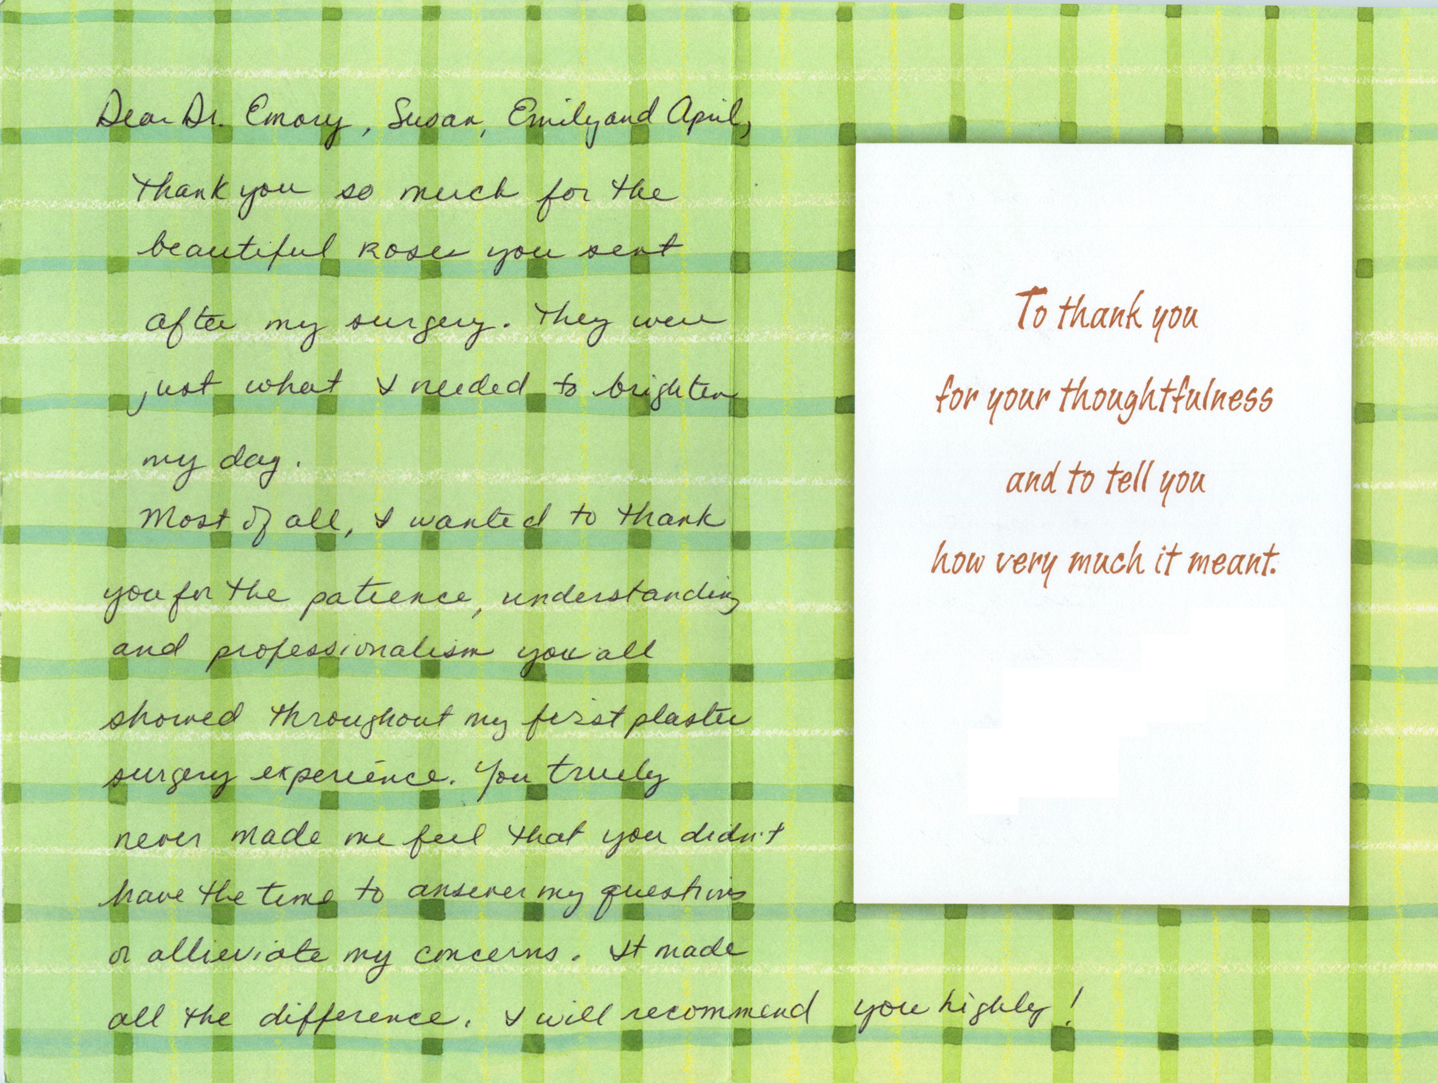 Dear Dr. Emory, Susan, Emily and April,
Thank you so much for the
beautiful roses you sent
after my surgery. They were
just what I needed to brighten
my day.
Most of all, I wanted to thank
you for the patience, understanding
and professionalism you all
showed throughout my first plastic
surgery experience. You truely
never made me feel that you didn't
have the time to answer my questions
or allieviate my concerns. It made
all the difference. I will recommend you highly!
To thank you
for your thoughtfulness
and to tell you
how very much it meant.